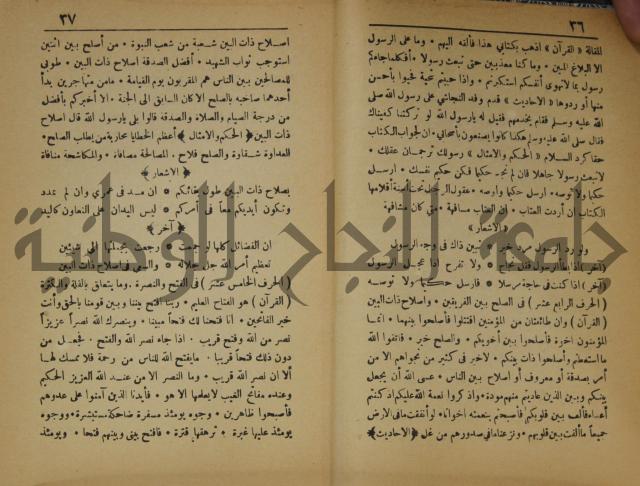 ٣٦
لمقالة « القرآن » اذهب بكتابي هذا فألقه اليهم • وما على الرسول
الا البلاغ المبين • وما كنا معذبين حتى نبعث رسولا • أفكلما جاءكم
رسول بما لا تهوى أنفسكم استكبرتم • واذا حييتم بتحية فحيوا بأحسن
منها أو ردوها « الاحاديث » قدم وفد النجاشي على رسول الله صلى
الله عليه وسلم فقام يخدمهم فقيل له يارسول الله لو تركتنا كفيناك
فقال صلى الله عليه وسلم هكذا كانوا يصنعون بأصحابي • ان لجواب الكتاب
حقا كرد السلام « الحكم والامثال » رسولك ترجمان عقلك •
لا تبعث رسولا جاهلا فان لم تجد حكيما فكن حكيم نفسك • ارسل
حكيما ولا توصه • ارسل حكيما وأوصه • عقول الرجال تحت أسنة أقلامها
الكتاب ان أردت العتاب •
« الاشعار »
ولم يرد الرسول مرد خير • تبين ذاك في وجه الرسول
(آخر) اذا أبطأ الرسول فقل نجاح • ولا تفرح اذا عجل الرسول
(آخر) اذا كنت في حاجة مرسلا • فارسل حكيما ولا توصه
(الحرف الرابع عشر) في الصلح بين الفريقين • واصلاح ذات البين
(القرآن) وان طائفتان من المؤمنين اقتتلوا فأصلحوا بينهما • انما
المؤمنون اخوة فأصلحوا بين أخويكم • والصلح خير • فاتقوا الله
ما استطعتم وأصلحوا ذات بينكم • لا خير في كثير من نجواهم الا من
أمر بصدقة أو معروف أو اصلاح بين الناس • عسى الله أن يجعل
بينكم وبين الذين عاديتم منهم مودة • واذكروا نعمة الله عليكم اذ كنتم
أعداء فألف بين قلوبكم فأصبحتم بنعمته اخوانا • لو أنفقت ما في الارض
جميعا ما ألفت بين قلوبهم • ونزعنا ما في صدورهم من غل «الاحاديث»
٣٧
اصلاح ذات البين شعبة من شعب النبوة • من أصلح بين اثنين
استوجب ثواب الشهيد • أفضل الصدقة اصلاح ذات البين • طوبى
للمصلحين بين الناس هم المقربون يوم القيامة • ما من متهاجرين يبدأ
أحدهما صاحبه بالصلح الا كان السابق الى الجنة • ألا أخبركم بأفضل
من درجة الصيام والصلاة والصدقة قالوا بلى يارسول الله قال اصلاح
ذات البين «الحكم والامثال» أعظم الخطايا محاربة من يطلب الصلح •
العداوة شقاوة والصلح فلاح • المصالحة مصافاة • والمكاشحة منافاة
« الاشعار »
بصلاح ذات البين طول بقائكم • ان مد في عمري وان لم يمدد
وتكون أيديكم معا في أمركم • ليس اليدان على التعاون كاليد
« آخر »
ان الفضائل كلها لو جمعت • رجعت بجملتها الى شيئين
تعظيم أمر الله جل جلاله • والسعي في اصلاح ذات البين
(الحرف الخامس عشر) في الفتح والنصرة • وما يتعلق بالقلة والكثرة
(القرآن) هو الفتاح العليم • ربنا افتح بيننا وبين قومنا بالحق وأنت
خير الفاتحين • انا فتحنا لك فتحا مبينا • وينصرك الله نصرا عزيزا
نصر من الله وفتح قريب • اذا جاء نصر الله والفتح • فجعل من
دون ذلك فتحا قريبا • ما يفتح الله للناس من رحمة فلا ممسك لها •
ألا ان نصر الله قريب • وما النصر الا من عند الله العزيز الحكيم
وعنده مفاتح الغيب لا يعلمها الا هو • فأيدنا الذين آمنوا على عدوهم
فأصبحوا ظاهرين • وجوه يومئذ مسفرة ضاحكة مستبشرة • ووجوه
يومئذ عليها غبرة • ترهقها قترة • فافتح بيني وبينهم فتحا • ويومئذ
جامعة النجاح الوطنية